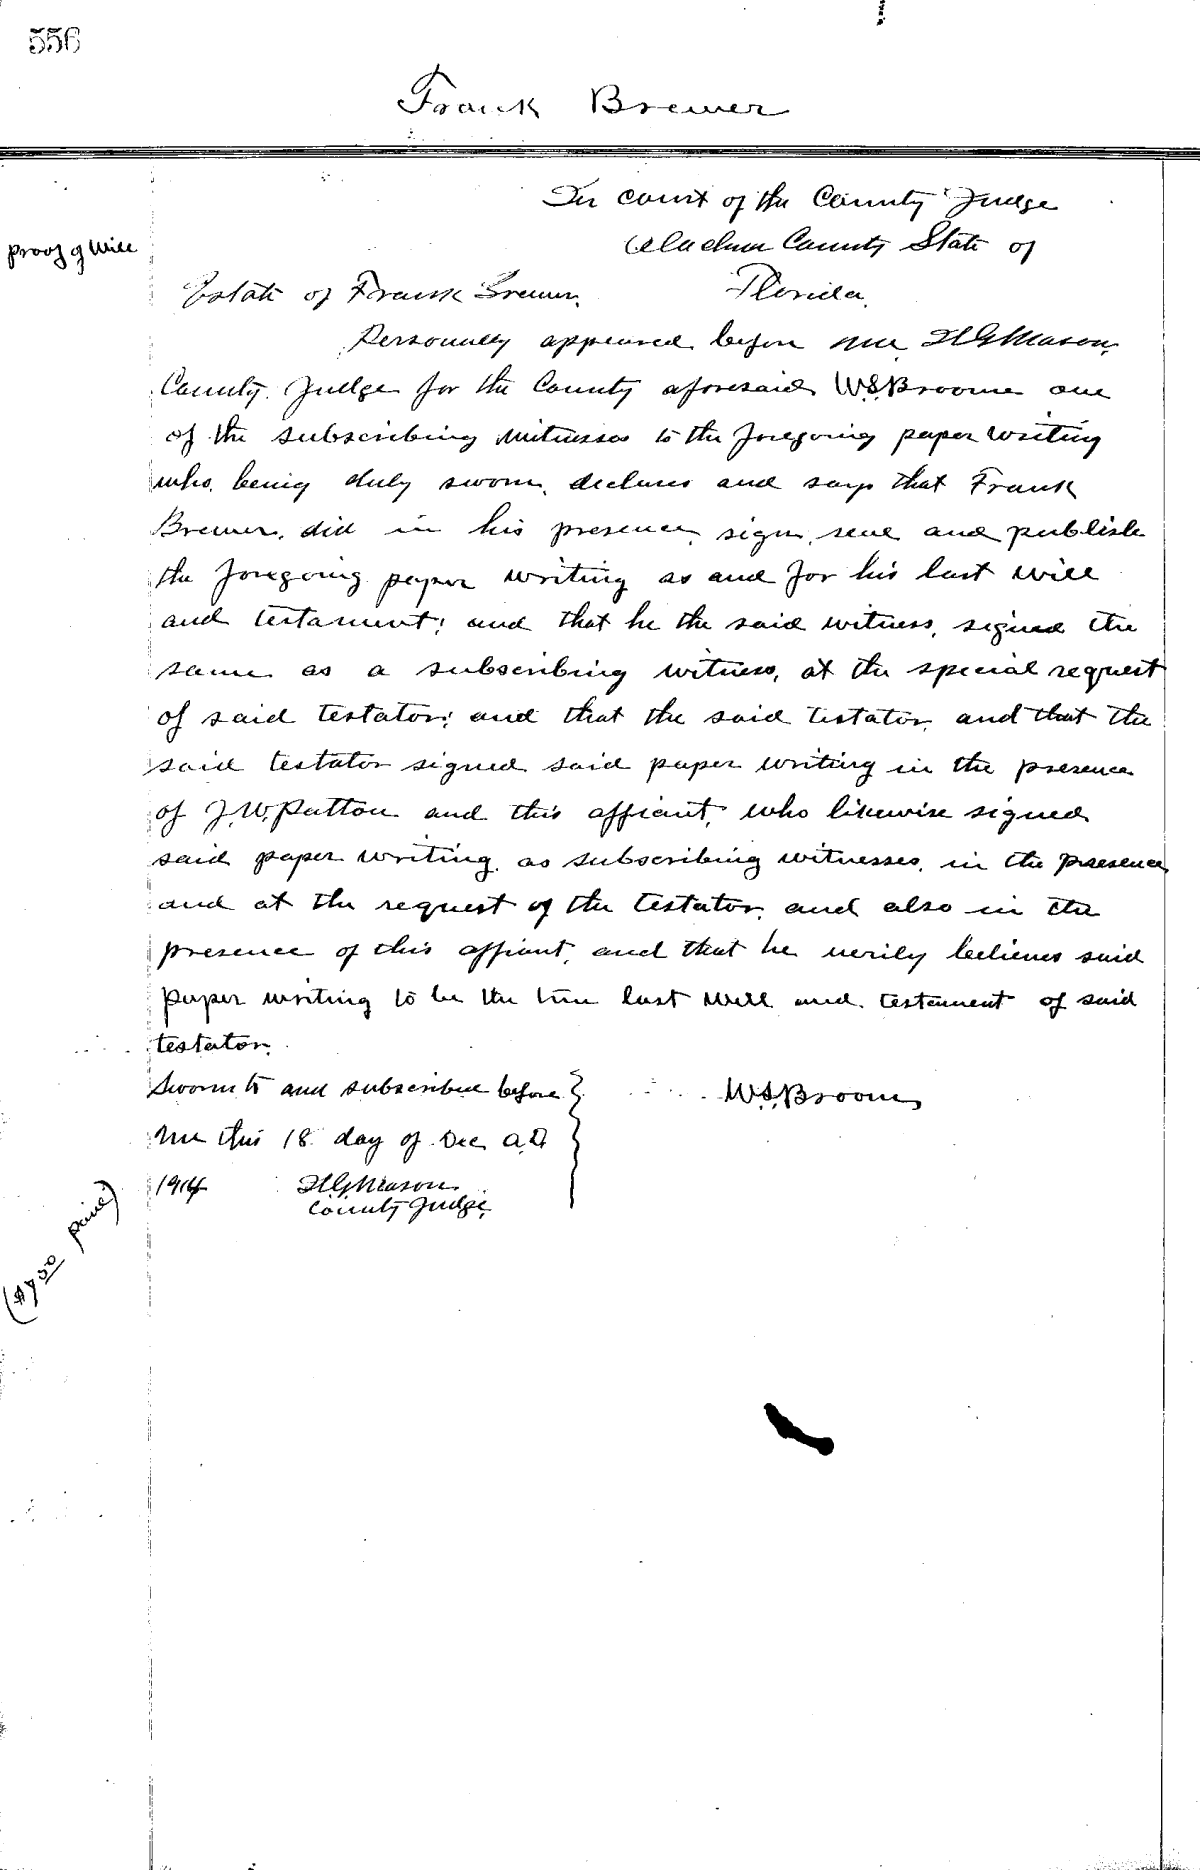 556
Frank Brewer
In court of the County Judge
Proof of Will
Alachua County State of
Estate of Frank Brewer.
Florida.
Personally appeared before me, H.G. Mason,
County Judge for the County aforesaid W.S. Broome one
of the subscribing witnesses to the foregoing paper writing
who, being duly sworn, declares and says that Frank
Brewer, did in his presence, sign, seal and publish
the foregoing paper writing as and for his last will
and testament; and that he the said witness, signed the
same as a subscribing witness, at the special request
of said testator; and that the said testator, and that the
said testator signed said paper writing in the presence
of J.W. Patton and this affiant, who likewise signed
said paper writing, as subscribing witnesses, in the presence
and at the request of the testator, and also in the
presence of this affiant, and that he verily believes said
paper writing to be the true last will and testament of said
testator.
Sworn to and subscribed before
W.S. Broome
me this 18 day of Dec A.D.
1914 H.G. Mason
County Judge.
paid)